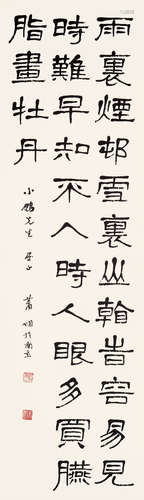 雨裏煙邨雪裏山看旹容易見
時難早知不入時人眼多買臙
脂畫牡丹
小鵬先生 屬正 蕭嫻於南京